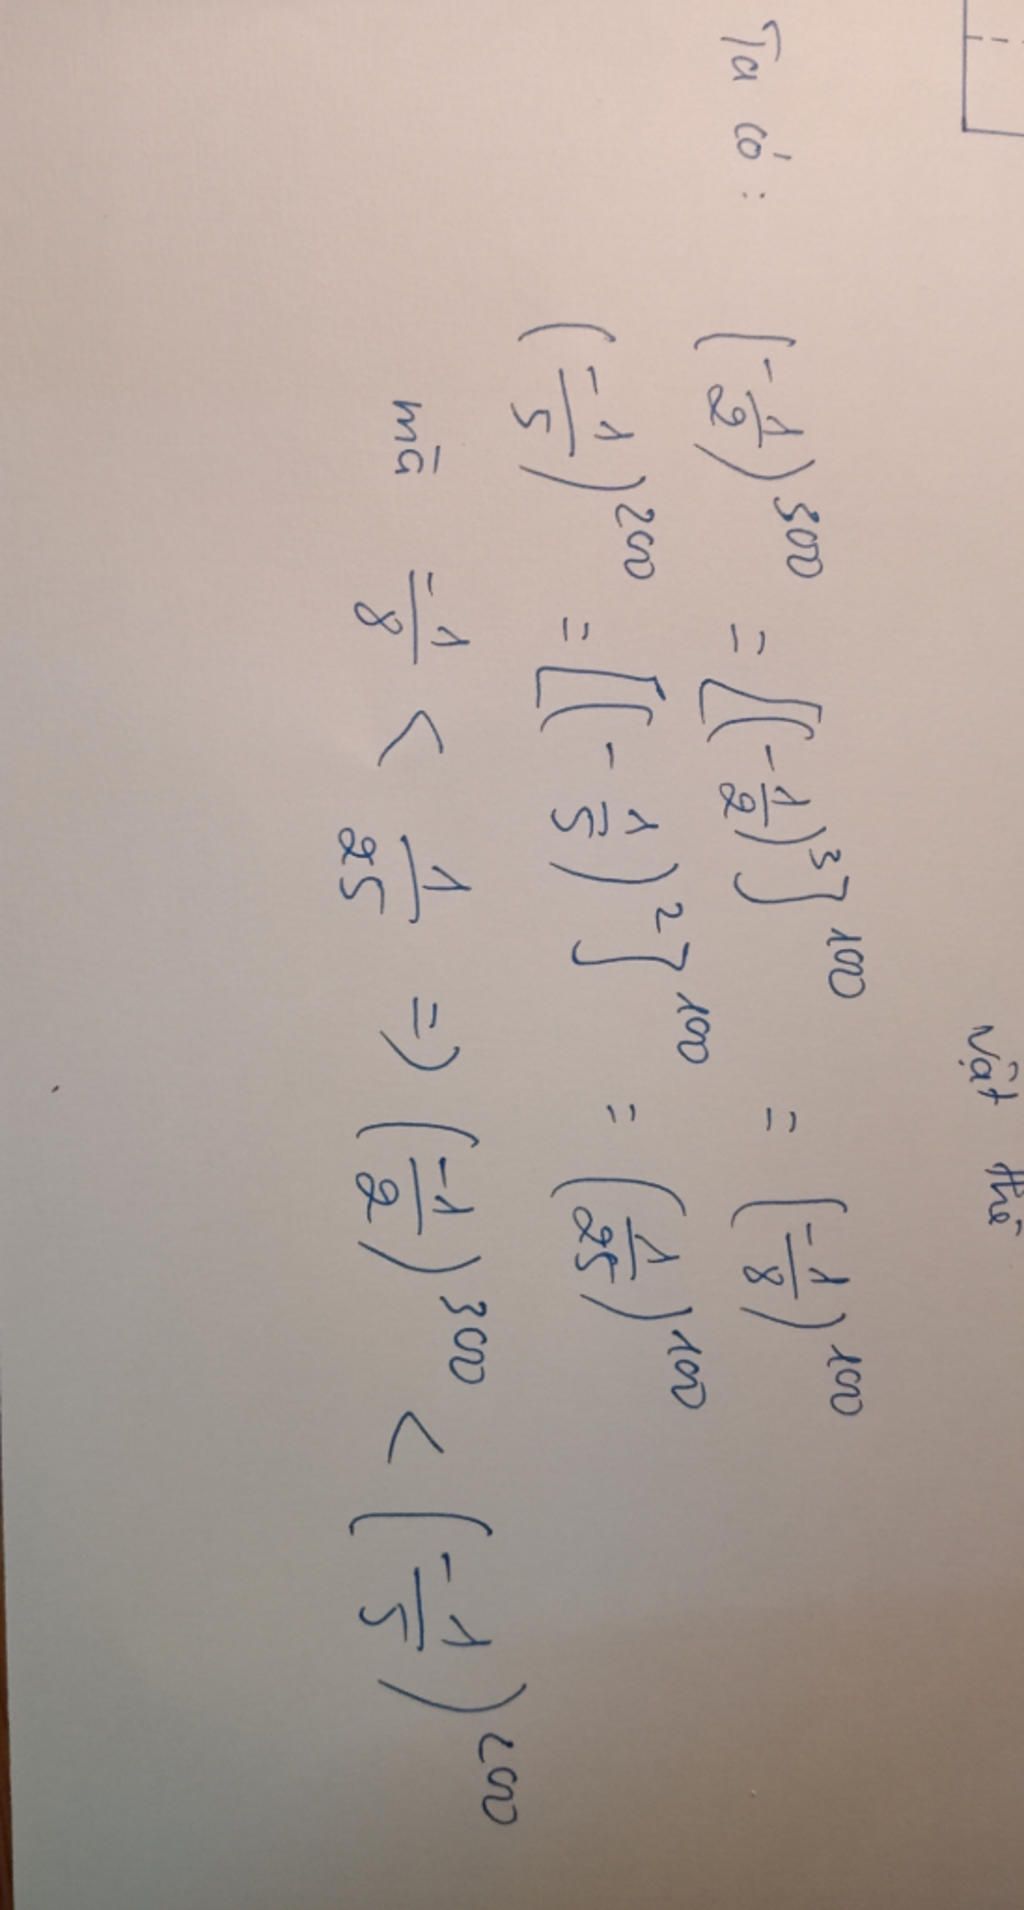 vật thể
Ta có: (-1/2)^300 = [(-1/2)^3]^100 = (-1/8)^100
(-1/5)^200 = [(-1/5)^2]^100 = (1/25)^100
mà -1/8 < 1/25 => (-1/2)^300 < (-1/5)^200